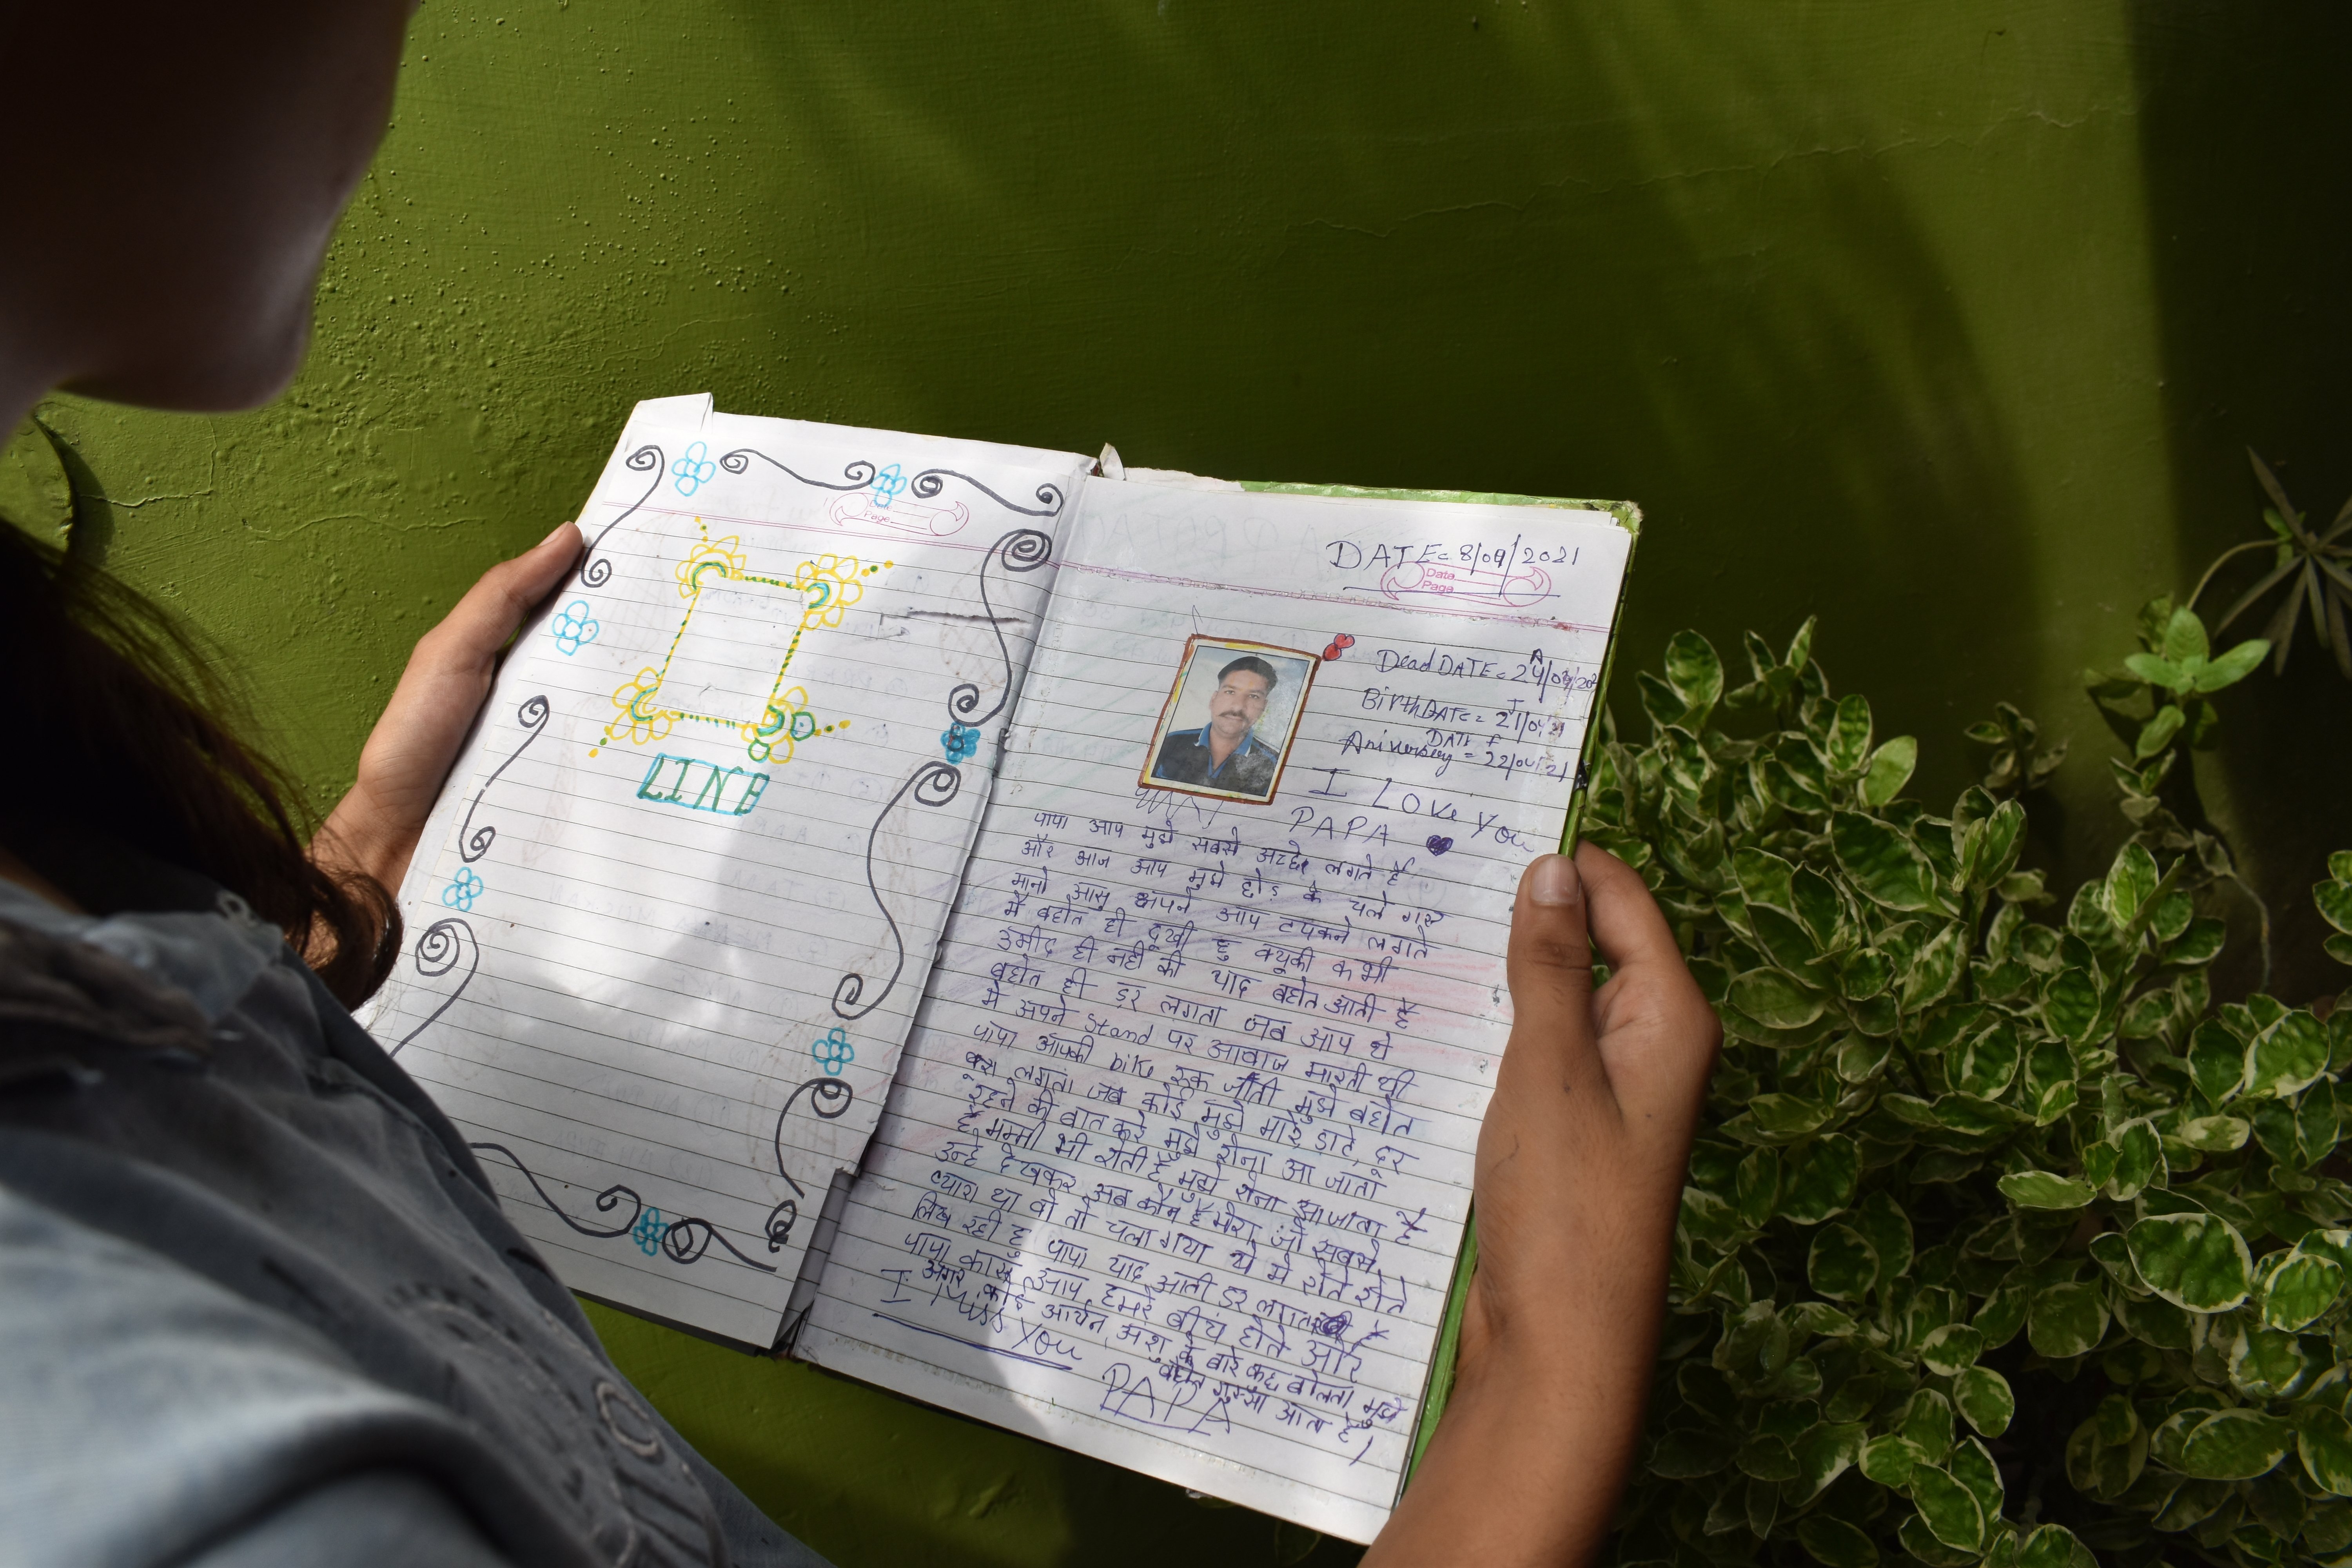 Date
Page
LINE
DATE = 8/09/2021
Data
Page
Dead DATE = 24/
Birth DATE = 21/04/21
DATE
Aniversery = 22/04/21
I Love You
PAPA
पापा आप मुझे सबसे अच्छे लगते हैं
और आज आप मुझे छोड़ के चले गए
मानो आसु अपने आप टपकने लगते
मैं बहोत ही दुखी हु क्युकी कभी
उमीद ही नही की याद बहोत आती है
बहोत ही डर लगता जब आप थे
मे अपने stand पर आवाज मारती थी
पापा आपकी bike रुक जाती मुझे बहोत
लगता जब कोई मुझे मारे डाटे, दूर
रहने की बात करे मुझे रोना आ जाता
है मम्मी भी रोती है मुझे रोना आ जाता है
उन्हे देखकर अब कौन है मेरा, जो सबसे
प्यारा था वो तो चला गया ये मे रोते रोते
लिख रही हु पापा याद आती डर लगता
पापा काश आप हमारे बीच होते और
अगर कोई आर्यन, अंशु के बारे कह बोलता मुझे
बहोत गुस्सा आता है।
I Miss You
PAPA